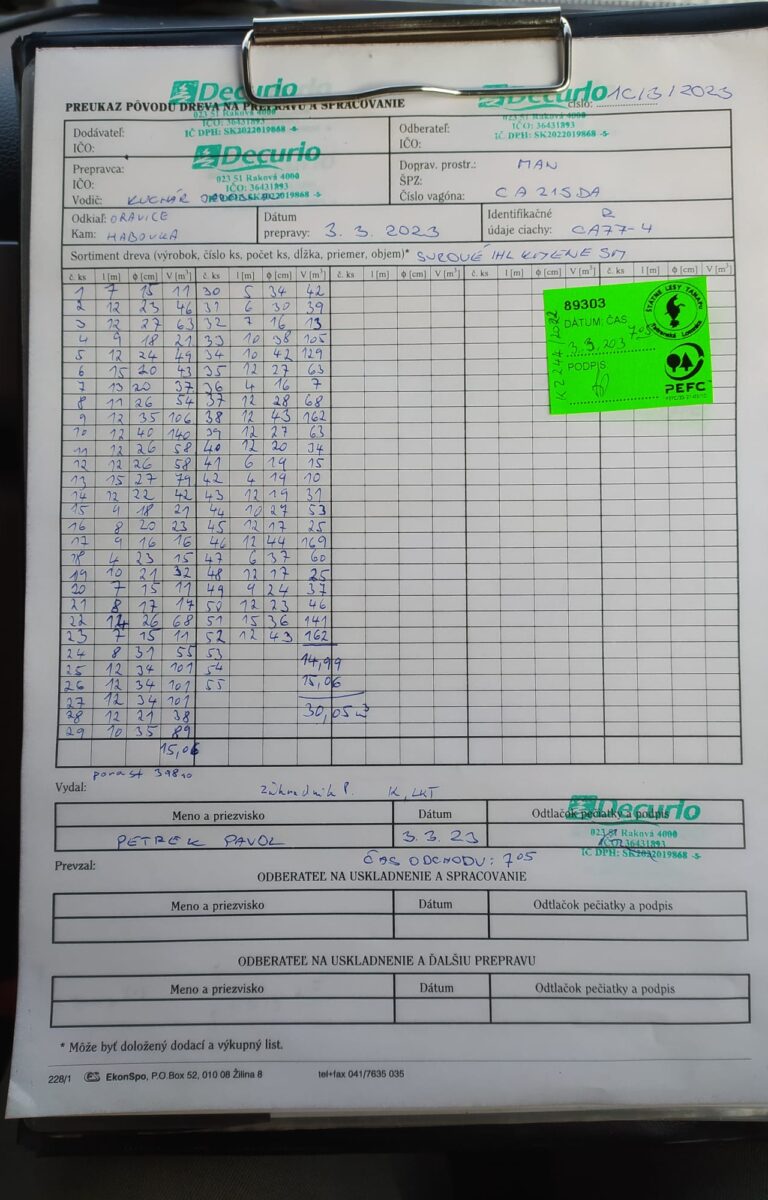 Decurio
PREUKAZ PÔVODU DREVA NA PREPRAVU A SPRACOVANIE
číslo: 10/3/2023
023 51 Raková 4000
IČO: 36431893
IČ DPH: SK2022019868 -5-
Decurio
IČ DPH: SK2022019868 -5-
Dodávateľ:
IČO:
Odberateľ:
IČO:
Decurio
023 51 Raková 4000
IČO: 36431893
Prepravca:
IČO:
Vodič: KUCHÁR
Doprav. prostr.: MAN
ŠPZ:
Číslo vagóna: CA 215DA
Odkiaľ: ORAVICE
Kam: HABOVKA
Dátum
prepravy: 3. 3. 2023
Identifikačné R
údaje ciachy: CA77-4
Sortiment dreva (výrobok, číslo ks, počet ks, dĺžka, priemer, objem)* SUROVÉ IHL KMENE SM
č. ks l [m] ϕ [cm] V [m³] č. ks l [m] ϕ [cm] V [m³] č. ks l [m] ϕ [cm] V [m³] č. ks l [m] ϕ [cm] V [m³] č. ks l [m] ϕ [cm] V [m³]
1 7 15 11 30 5 34 42
2 12 23 46 31 6 30 39
3 12 27 63 32 7 16 13
4 9 18 21 33 10 38 105
5 12 24 49 34 10 42 129
6 15 20 43 35 12 27 63
7 13 20 37 36 4 16 7
8 11 26 54 37 12 28 68
9 12 35 106 38 12 43 162
10 12 40 140 39 12 27 63
11 12 26 58 40 12 20 34
12 12 26 58 41 6 19 15
13 15 27 79 42 4 19 10
14 12 22 42 43 12 19 31
15 9 18 21 44 10 27 53
16 8 20 23 45 12 17 25
17 9 16 16 46 12 44 169
18 4 23 15 47 6 37 60
19 10 21 32 48 12 17 25
20 7 15 11 49 9 24 37
21 8 17 17 50 12 23 46
22 14 26 68 51 15 36 141
23 7 15 11 52 12 43 162
24 8 31 55 53
25 12 34 101 54 14,99
26 12 34 101 55 15,06
27 12 34 101
28 12 21 38 30,05 m³
29 10 35 89
15,06
89303
DÁTUM, ČAS
3.3.203 705
PODPIS
ŠTÁTNE LESY TANAPu
Tatranská Lomnica
PEFC
porast 398
Vydal:
Záhradník P. K, LKT
Meno a priezvisko Dátum Odtlačok pečiatky a podpis
PETREK PAVOL 3.3.23
Decurio
023 51 Raková 4000
IČO: 36431893
IČ DPH: SK2022019868 -5-
Prevzal:
ČAS ODCHODU: 705
ODBERATEĽ NA USKLADNENIE A SPRACOVANIE
Meno a priezvisko Dátum Odtlačok pečiatky a podpis
ODBERATEĽ NA USKLADNENIE A ĎALŠIU PREPRAVU
Meno a priezvisko Dátum Odtlačok pečiatky a podpis
* Môže byť doložený dodací a výkupný list.
228/1 EkonSpo, P.O.Box 52, 010 08 Žilina 8 tel+fax 041/7635 035